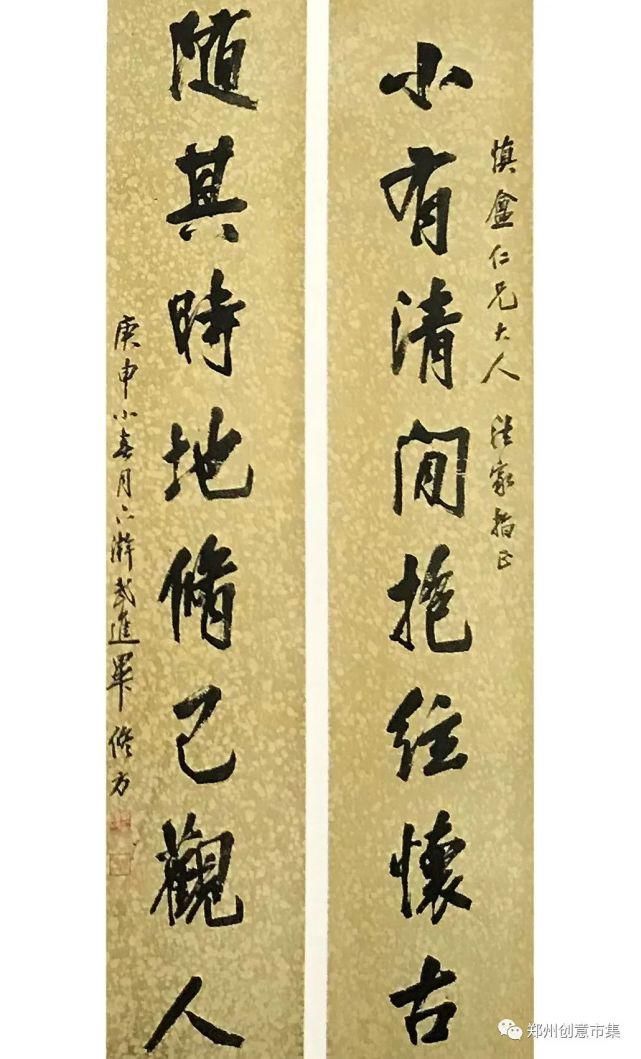 慎盦仁兄大人 法家指正
小有清閒抱絃懷古
隨其時地脩己觀人
庚申小春月下澣武進畢修方
郑州创意市集